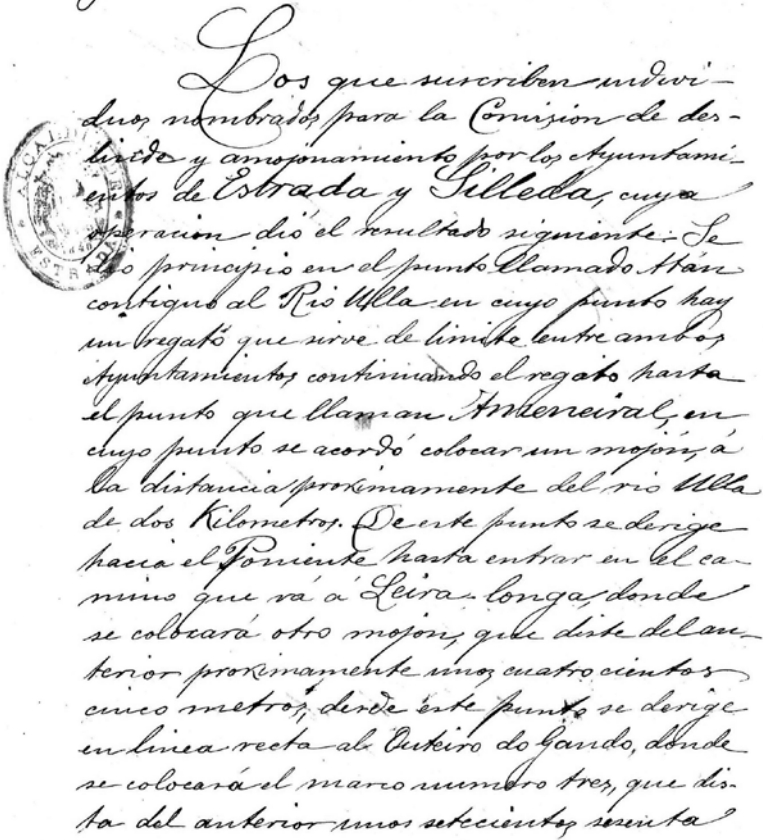 Los que suscriben indivi-
duos nombrados para la Comision de des-
linde y amojonamiento por los Ayuntami-
entos de Estrada y Silleda, cuya
operacion dió el resultado siguiente: Se
dió principio en el punto llamado Atán
contiguo al Rio Ulla en cuyo punto hay
un regato que sirve de limite entre ambos
Ayuntamientos continuando el regato hasta
el punto que llaman Ameneiral, en
cuyo punto se acordó colocar un mojón, á
la distancia proximamente del rio Ulla
de dos Kilometros. De este punto se derige
hacia el Poniente hasta entrar en el ca-
mino que vá á Leira-longa, donde
se colocará otro mojon, que diste del an-
terior proximamente unos cuatrocientos
cinco metros, desde este punto se derige
en linea recta al Outeiro do Gando, donde
se colocará el marco numero tres, que dis-
ta del anterior unos setecientos sesenta
ALCALDIA DE
ESTRADA